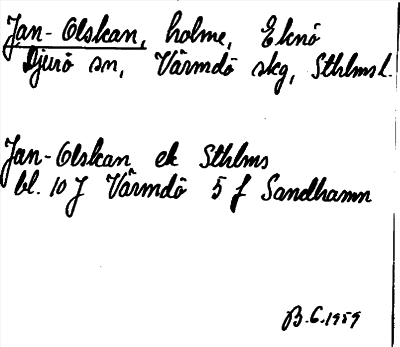 Jan-Olskan, holme, Eknö
Djurö sn, Värmdö skg, Sthlms l.
Jan-Olskan ek Sthlms
bl. 10 J Värmdö 5 f Sandhamn
B.G. 1959